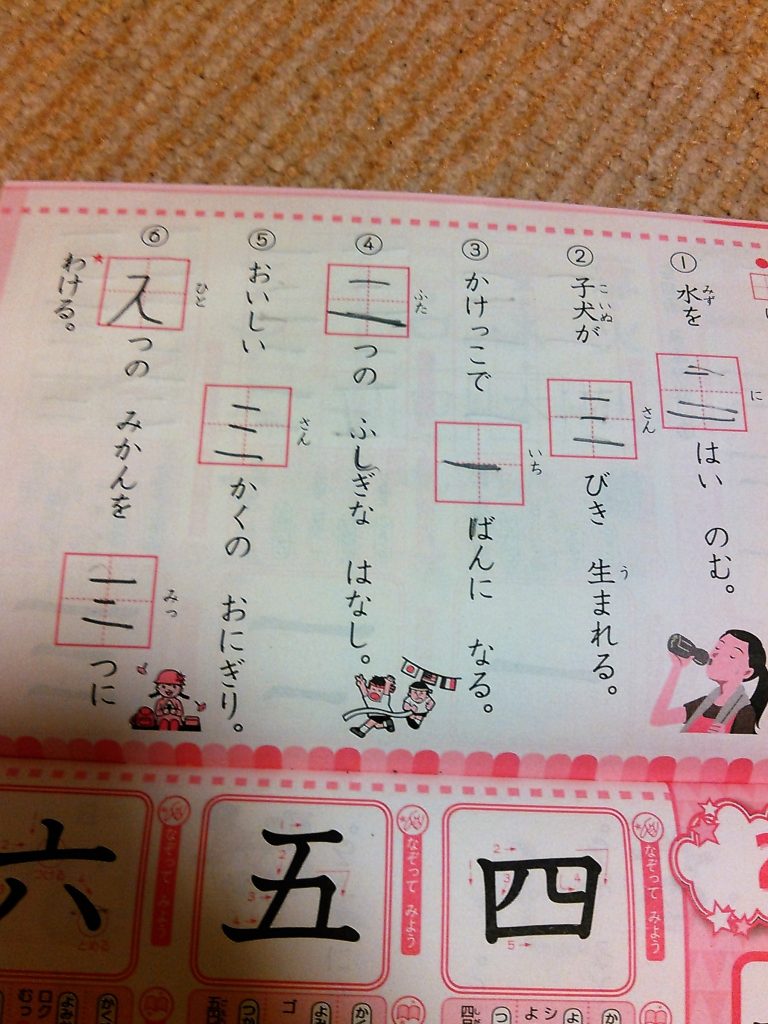 ① 水を はい のむ。
みず に
② 子犬が 三びき 生まれる。
こ いぬ さん う
③ かけっこで 一ばんに なる。
いち
④ 二つの ふしぎな はなし。
ふた
⑤ おいしい 三かくの おにぎり。
さん
⑥ スつの みかんを 三つに
ひと みっ
わける。
なぞって みよう
四
なぞって みよう
五
なぞって みよう
六
とめる